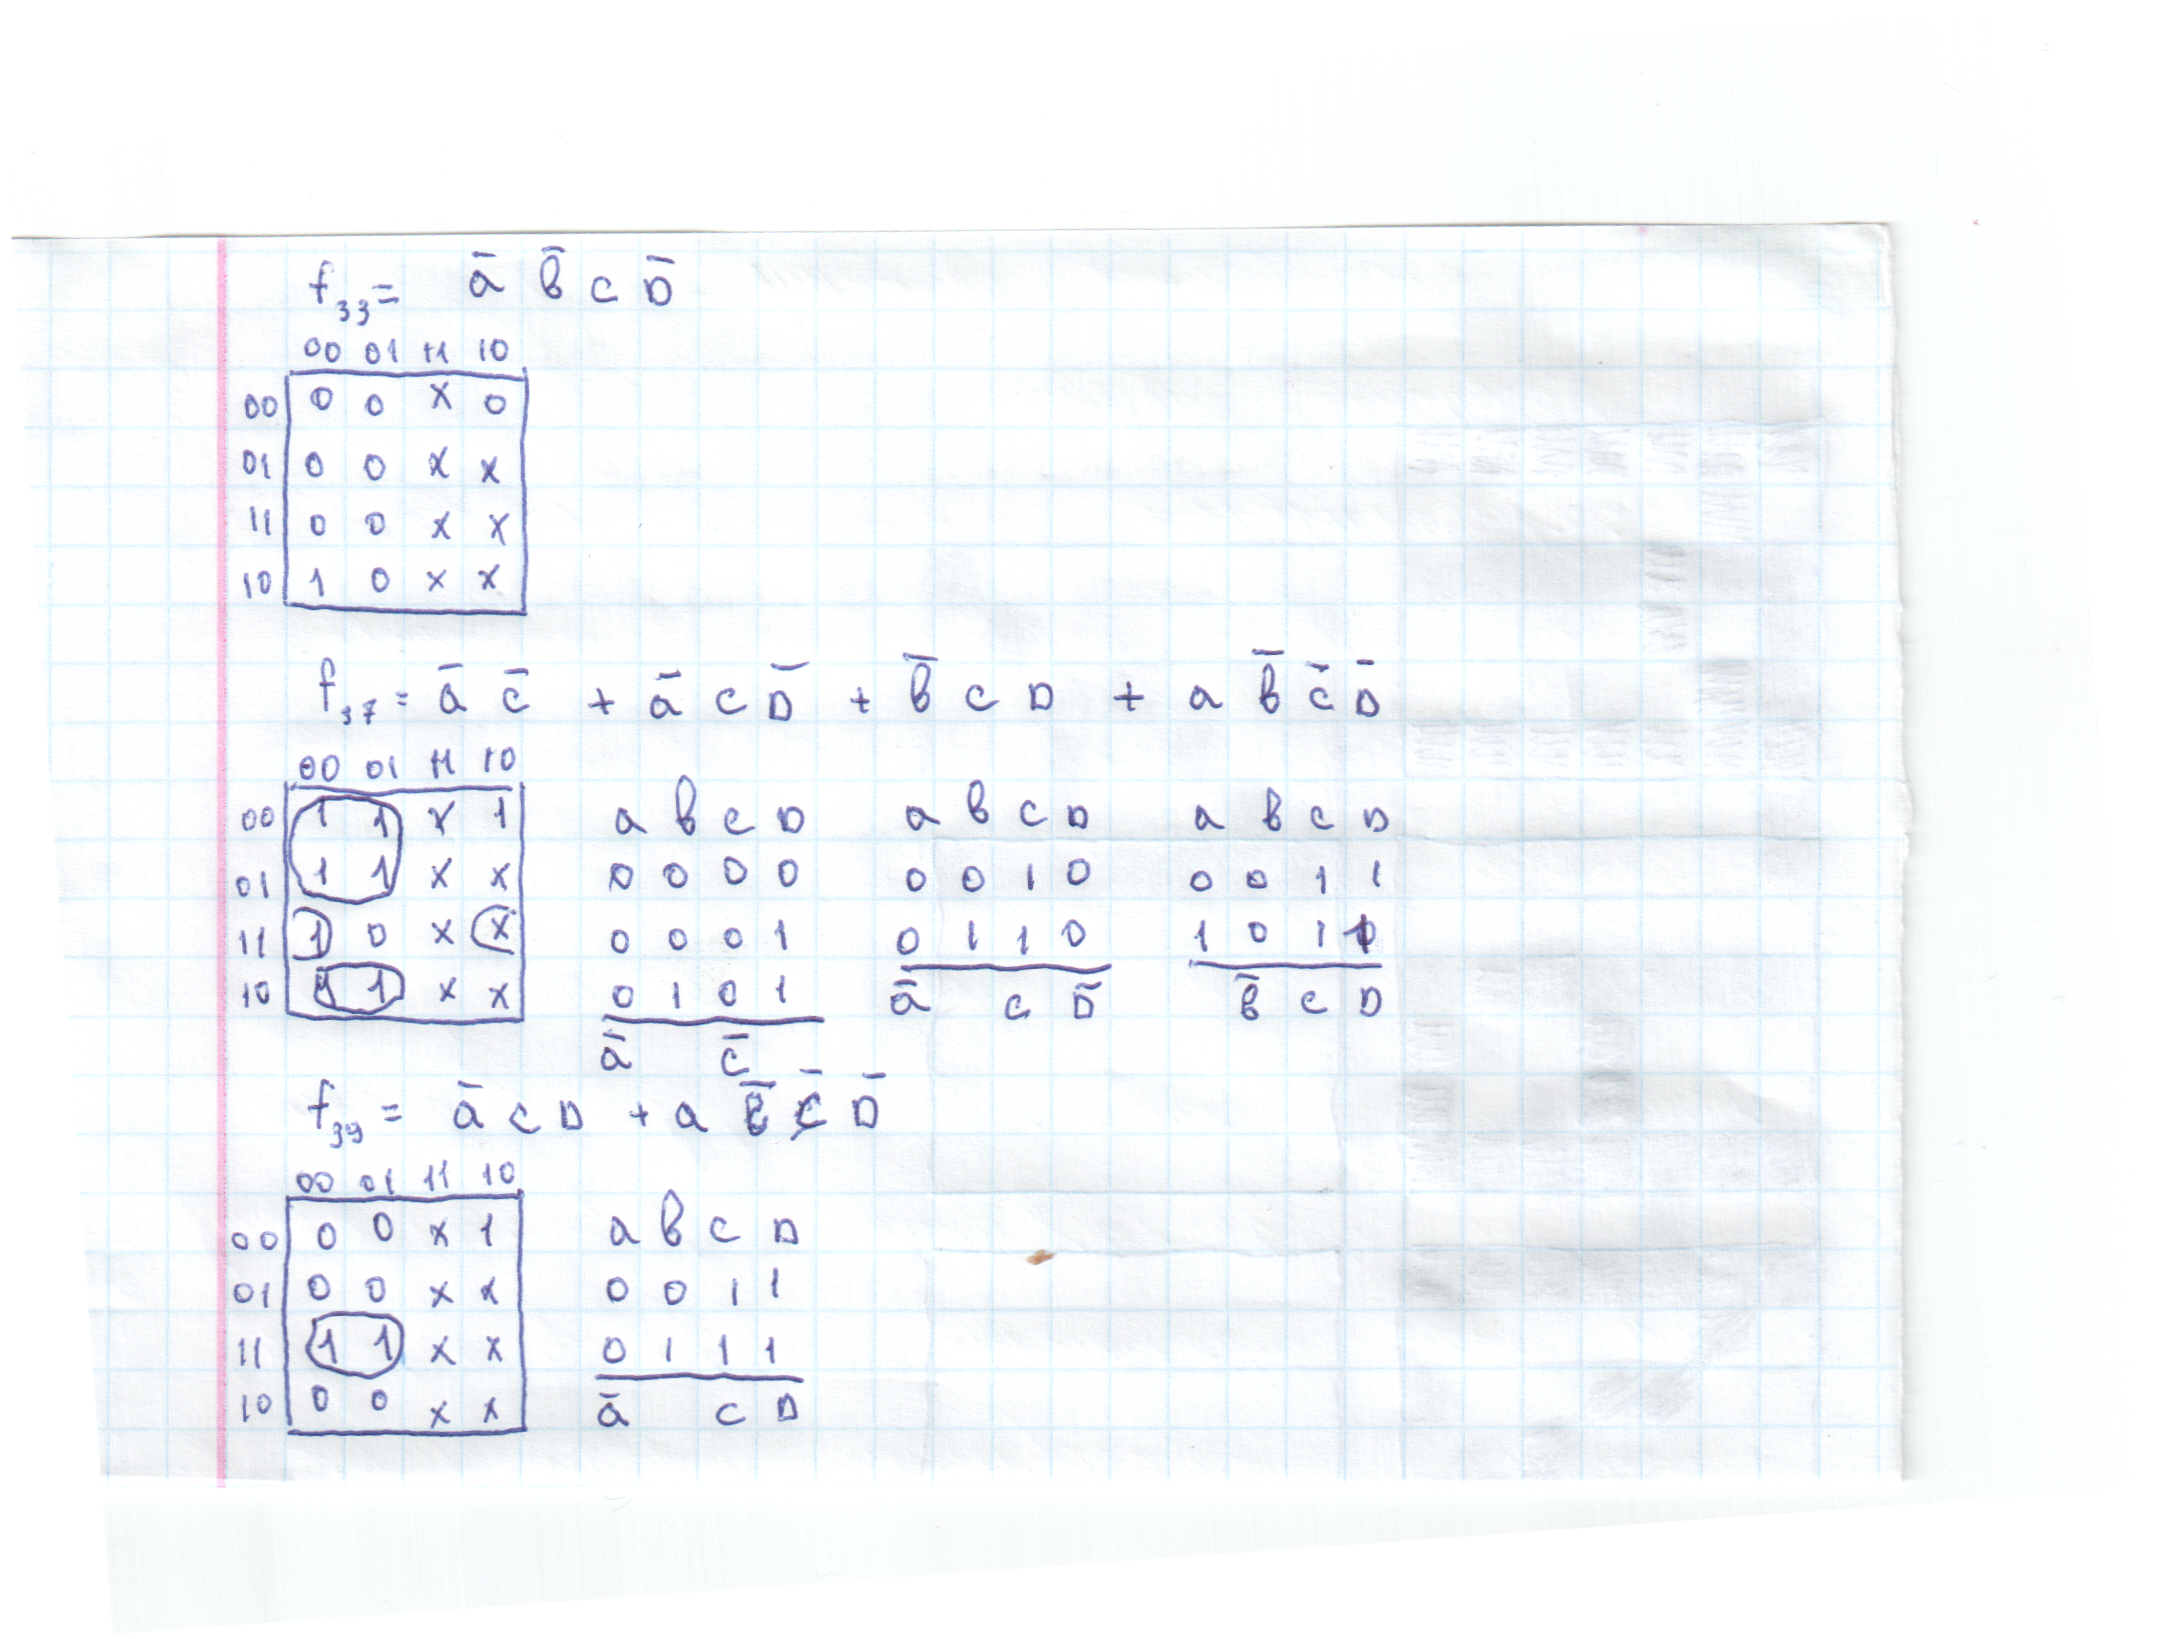 f₃₃ = ā b̄ c D̄
00 01 11 10
00 0 0 x 0
01 0 0 x x
11 0 0 x x
10 1 0 x x
f₃₇ = ā c̄ + ā c D̄ + b̄ c D + a b̄ c̄ D̄
00 01 11 10
00 1 1 x 1
01 1 1 x x
11 1 0 x x
10 1 1 x x
a b c D
0 0 0 0
0 0 0 1
0 1 0 1
ā c̄
a b c D
0 0 1 0
0 1 1 0
ā c D̄
a b c D
0 0 1 1
1 0 1 1
b̄ c D
f₃₉ = ā c D + a b̄ c̄ D̄
00 01 11 10
00 0 0 x 1
01 0 0 x x
11 1 1 x x
10 0 0 x x
a b c D
0 0 1 1
0 1 1 1
ā c D